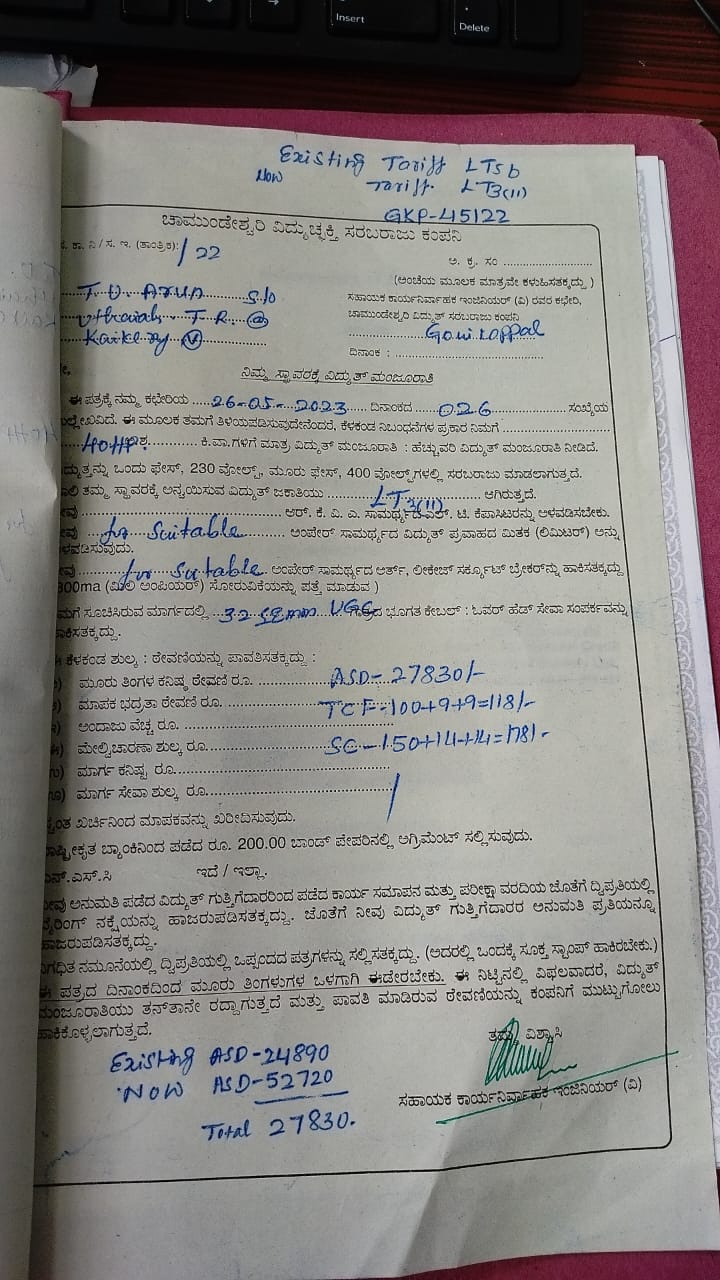 Insert
Delete
Existing Tariff LT5b
Now Tariff. LT3(11)
GKP-45122
ಚಾಮುಂಡೇಶ್ವರಿ ವಿದ್ಯುಚ್ಛಕ್ತಿ ಸರಬರಾಜು ಕಂಪನಿ
ಕಾ. ನಿ / ಸ. ಇ. (ತಾಂತ್ರಿಕ): /22
ಅ. ಕ್ರ. ಸಂ
(ಅಂಚೆಯ ಮೂಲಕ ಮಾತ್ರವೇ ಕಳುಹಿಸತಕ್ಕದ್ದು )
S/o
ಸಹಾಯಕ ಕಾರ್ಯನಿರ್ವಾಹಕ ಇಂಜಿನಿಯರ್ (ವಿ) ರವರ ಕಛೇರಿ,
T. R. @
ಚಾಮುಂಡೇಶ್ವರಿ ವಿದ್ಯುಚ್ಛಕ್ತಿ ಸರಬರಾಜು ಕಂಪನಿ
(V)
ದಿನಾಂಕ :
ನಿಮ್ಮ ಸ್ಥಾವರಕ್ಕೆ ವಿದ್ಯುತ್ ಮಂಜೂರಾತಿ
ಈ ಪತ್ರಕ್ಕೆ ನಮ್ಮ ಕಛೇರಿಯ 26-05-2023 ದಿನಾಂಕದ 026 ಸಂಖ್ಯೆಯ
ಈ ಮೂಲಕ ತಮಗೆ ತಿಳಿಯಪಡಿಸುವುದೇನೆಂದರೆ, ಕೆಳಕಂಡ ನಿಬಂಧನೆಗಳ ಪ್ರಕಾರ ನಿಮಗೆ
40HP. ಕಿ.ವಾ.ಗಳಿಗೆ ಮಾತ್ರ ವಿದ್ಯುತ್ ಮಂಜೂರಾತಿ : ಹೆಚ್ಚುವರಿ ವಿದ್ಯುತ್ ಮಂಜೂರಾತಿ ನೀಡಿದೆ.
ಒಂದು ಫೇಸ್, 230 ವೋಲ್ಟ್, ಮೂರು ಫೇಸ್, 400 ವೋಲ್ಟ್‌ಗಳಲ್ಲಿ ಸರಬರಾಜು ಮಾಡಲಾಗುತ್ತದೆ.
ತಮ್ಮ ಸ್ಥಾವರಕ್ಕೆ ಅನ್ವಯಿಸುವ ವಿದ್ಯುತ್ ಜಕಾತಿಯು LT3(11) ಆಗಿರುತ್ತದೆ.
ಆರ್. ಕೆ. ವಿ. ಎ. ಸಾಮರ್ಥ್ಯದ ಎಲ್. ಟಿ. ಕೆಪಾಸಿಟರನ್ನು ಅಳವಡಿಸಬೇಕು.
for Suitable ಅಂಪೇರ್ ಸಾಮರ್ಥ್ಯದ ವಿದ್ಯುತ್ ಪ್ರವಾಹದ ಮಿತಕ (ಲಿಮಿಟರ್) ಅನ್ನು
for Suitable ಅಂಪೇರ್ ಸಾಮರ್ಥ್ಯದ ಅರ್ತ್, ಲೀಕೇಜ್ ಸರ್ಕ್ಯೂಟ್ ಬ್ರೇಕರ್‌ನ್ನು ಹಾಕಿಸತಕ್ಕದ್ದು
(ಮಿಲಿ ಅಂಪಿಯರ್) ಸೋರುವಿಕೆಯನ್ನು ಪತ್ತೆ ಮಾಡುವ )
ಸೂಚಿಸಿರುವ ಮಾರ್ಗದಲ್ಲಿ ಭೂಗತ ಕೇಬಲ್ : ಓವರ್ ಹೆಡ್ ಸೇವಾ ಸಂಪರ್ಕವನ್ನು
ಕೆಳಕಂಡ ಶುಲ್ಕ : ಠೇವಣಿಯನ್ನು ಪಾವತಿಸತಕ್ಕದ್ದು :
ಮೂರು ತಿಂಗಳ ಕನಿಷ್ಠ ಠೇವಣಿ ರೂ. ASD- 27830/-
ಮಾಪಕ ಭದ್ರತಾ ಠೇವಣಿ ರೂ. TCF-100+9+9=118/-
ಅಂದಾಜು ವೆಚ್ಚ ರೂ.
ಮೇಲ್ವಿಚಾರಣಾ ಶುಲ್ಕ ರೂ. SC-150+14+14=178/-
ಮಾರ್ಗ ಕನಿಷ್ಟ ರೂ.
ಮಾರ್ಗ ಸೇವಾ ಶುಲ್ಕ ರೂ.
ಖರ್ಚಿನಿಂದ ಮಾಪಕವನ್ನು ಖರೀದಿಸುವುದು.
ಬ್ಯಾಂಕಿನಿಂದ ಪಡೆದ ರೂ. 200.00 ಬಾಂಡ್ ಪೇಪರಿನಲ್ಲಿ ಅಗ್ರಿಮೆಂಟ್ ಸಲ್ಲಿಸುವುದು.
ಎನ್.ಎಸ್.ಸಿ ಇದೆ / ಇಲ್ಲಾ.
ನೀವು ಅನುಮತಿ ಪಡೆದ ವಿದ್ಯುತ್ ಗುತ್ತಿಗೆದಾರರಿಂದ ಪಡೆದ ಕಾರ್ಯ ಸಮಾಪನ ಮತ್ತು ಪರೀಕ್ಷಾ ವರದಿಯ ಜೊತೆಗೆ ದ್ವಿಪ್ರತಿಯಲ್ಲಿ
ವೈರಿಂಗ್ ನಕ್ಷೆಯನ್ನು ಹಾಜರುಪಡಿಸತಕ್ಕದ್ದು. ಜೊತೆಗೆ ನೀವು ವಿದ್ಯುತ್ ಗುತ್ತಿಗೆದಾರರ ಅನುಮತಿ ಪ್ರತಿಯನ್ನೂ
ಹಾಜರುಪಡಿಸತಕ್ಕದ್ದು.
ನಿಗಧಿತ ನಮೂನೆಯಲ್ಲಿ ದ್ವಿಪ್ರತಿಯಲ್ಲಿ ಒಪ್ಪಂದದ ಪತ್ರಗಳನ್ನು ಸಲ್ಲಿಸತಕ್ಕದ್ದು. (ಅದರಲ್ಲಿ ಒಂದಕ್ಕೆ ಸೂಕ್ತ ಸ್ಟಾಂಪ್ ಹಾಕಿರಬೇಕು.)
ಈ ಪತ್ರದ ದಿನಾಂಕದಿಂದ ಮೂರು ತಿಂಗಳುಗಳ ಒಳಗಾಗಿ ಈಡೇರಬೇಕು. ಈ ನಿಟ್ಟಿನಲ್ಲಿ ವಿಫಲವಾದರೆ, ವಿದ್ಯುತ್
ಮಂಜೂರಾತಿಯು ತನ್‌ತಾನೇ ರದ್ದಾಗುತ್ತದೆ ಮತ್ತು ಪಾವತಿ ಮಾಡಿರುವ ಠೇವಣಿಯನ್ನು ಕಂಪನಿಗೆ ಮುಟ್ಟುಗೋಲು
ಹಾಕಿಕೊಳ್ಳಲಾಗುತ್ತದೆ.
ತಮ್ಮ ವಿಶ್ವಾಸಿ
Existing ASD-24890
Now ASD-52720
ಸಹಾಯಕ ಕಾರ್ಯನಿರ್ವಾಹಕ ಇಂಜಿನಿಯರ್ (ವಿ)
Total 27830.